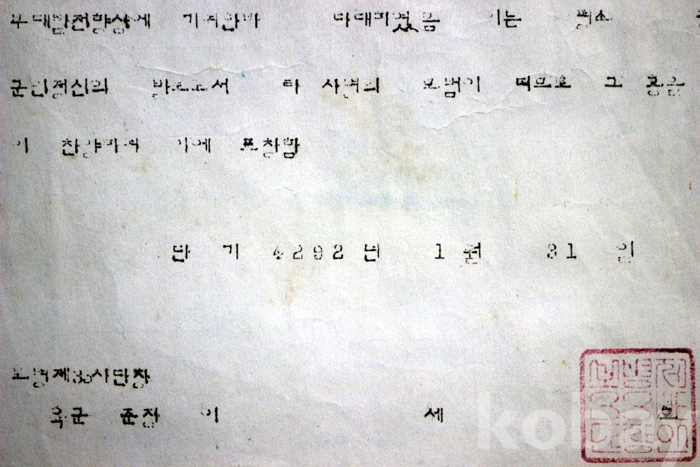 부대발전향상에 기여한바 다대하였음 이는 평소
군인정신의 발로로서 타 사병의 모범이 되므로 그 공을
찬양하여 이에 표창함
단 기 4292 년 1 월 31 일
육군 준장 이 세 호
koba